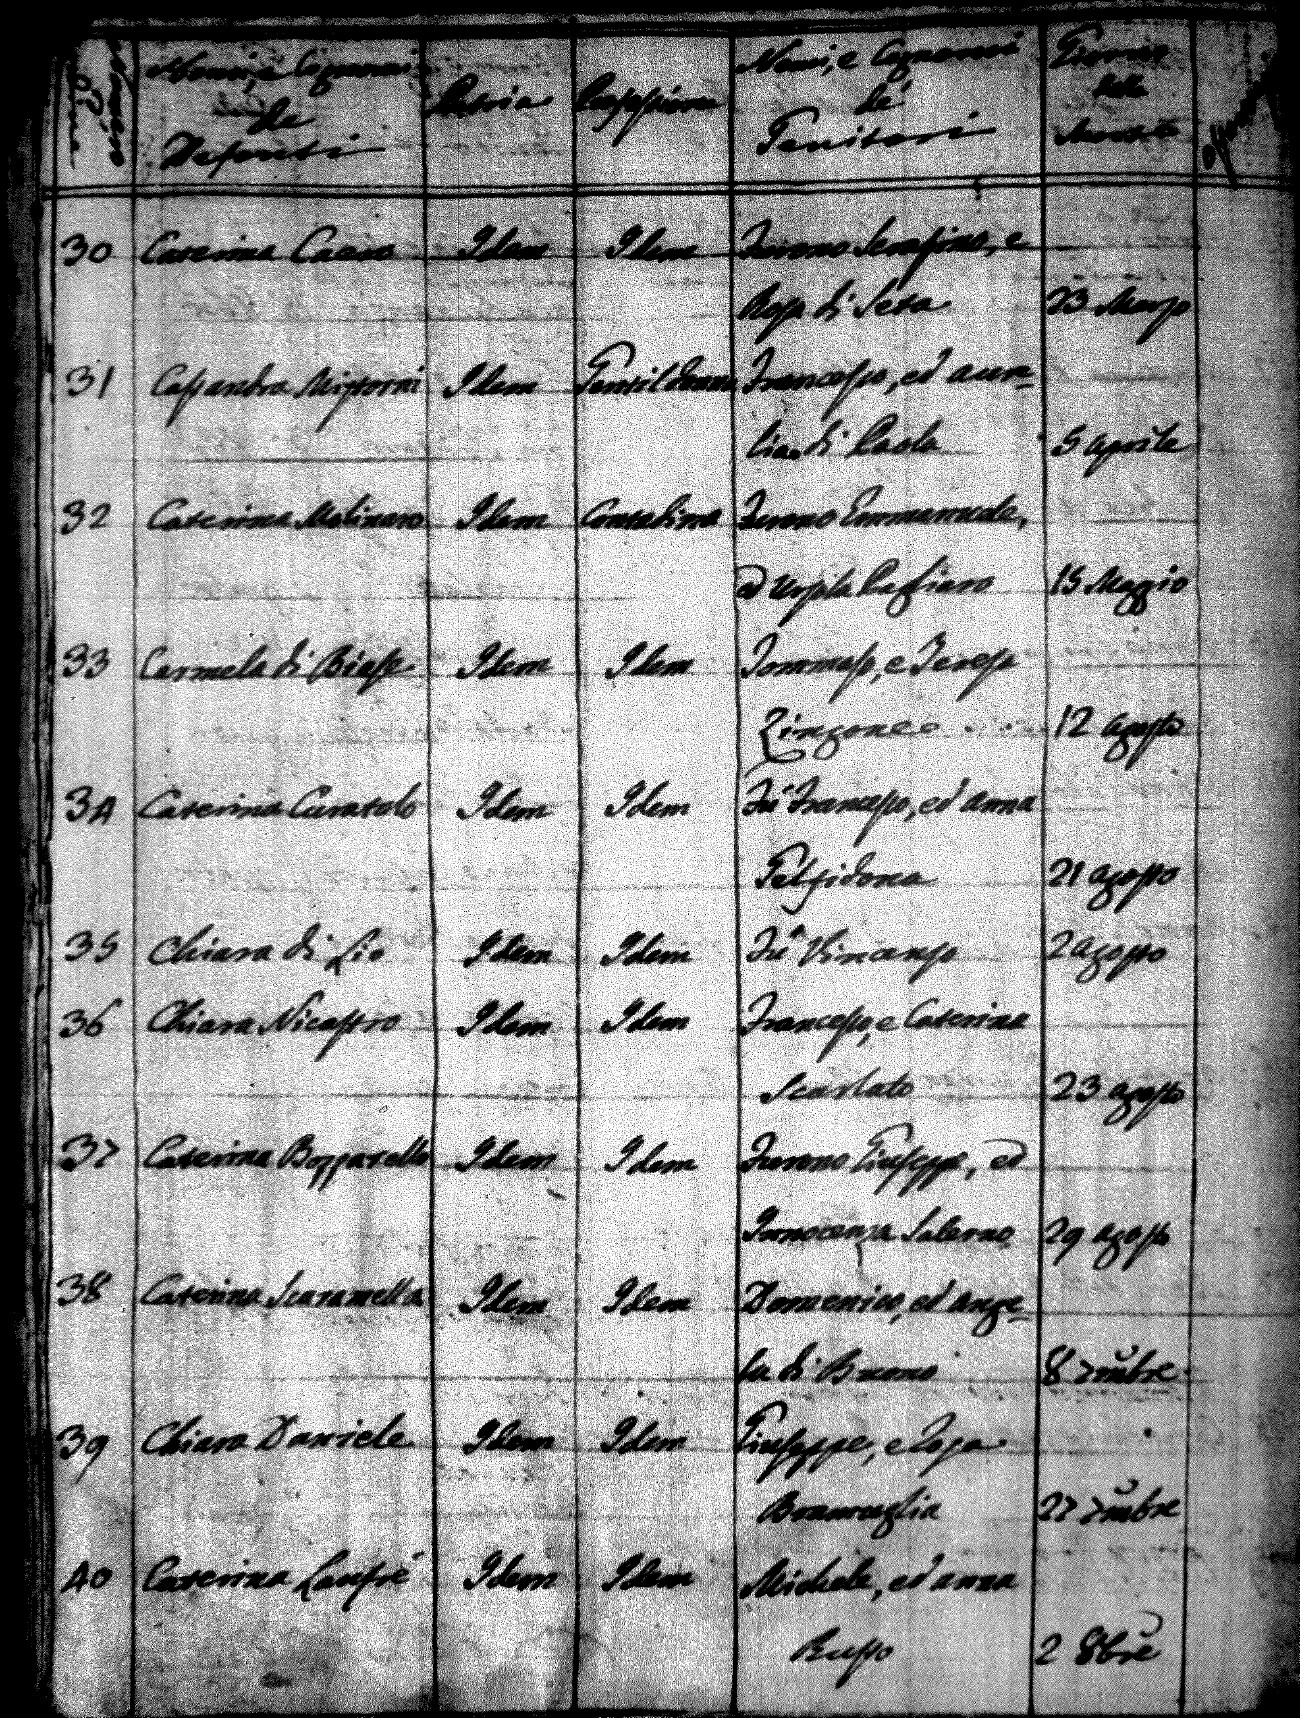 Nomi, e Cognomi
de
Defonti
Patria
Professione
Nomi, e Cognomi
de'
Genitori
Giorno
della
morte
30 Caterina Idem Idem Furono Serafino, e
Rosa di Seta 23 Marzo
31 Cassandra Idem Gentildonna Francesco, ed Aure=
lia di Paola 5 aprile
32 Caterina Molinaro Idem Contadina Furono Emmanuele,
ed Ursola Caffiero 15 Maggio
33 Carmela di Biase Idem Idem Tommaso, e Teresa
Zingone 12 agosto
34 Caterina Curatolo Idem Idem Fu' Francesco, ed anna
Gelfidona 21 agosto
35 Chiara di Lio Idem Idem Fu' Vincenzo 2 agosto
36 Chiara Nicastro Idem Idem Francesco, e Caterina
Scarlato 23 agosto
37 Caterina Bozzarello Idem Idem Furono Giuseppe, ed
Innocenza Salerno 29 agosto
38 Caterina Scaramella Idem Idem Domenico, ed ange=
la di Bruno 8 7mbre
39 Chiara Daniele Idem Idem Giuseppe, e Rosa
Bramaglia 27 7mbre
40 Caterina Lanfré Idem Idem Michele, ed anna
Russo 2 8bre